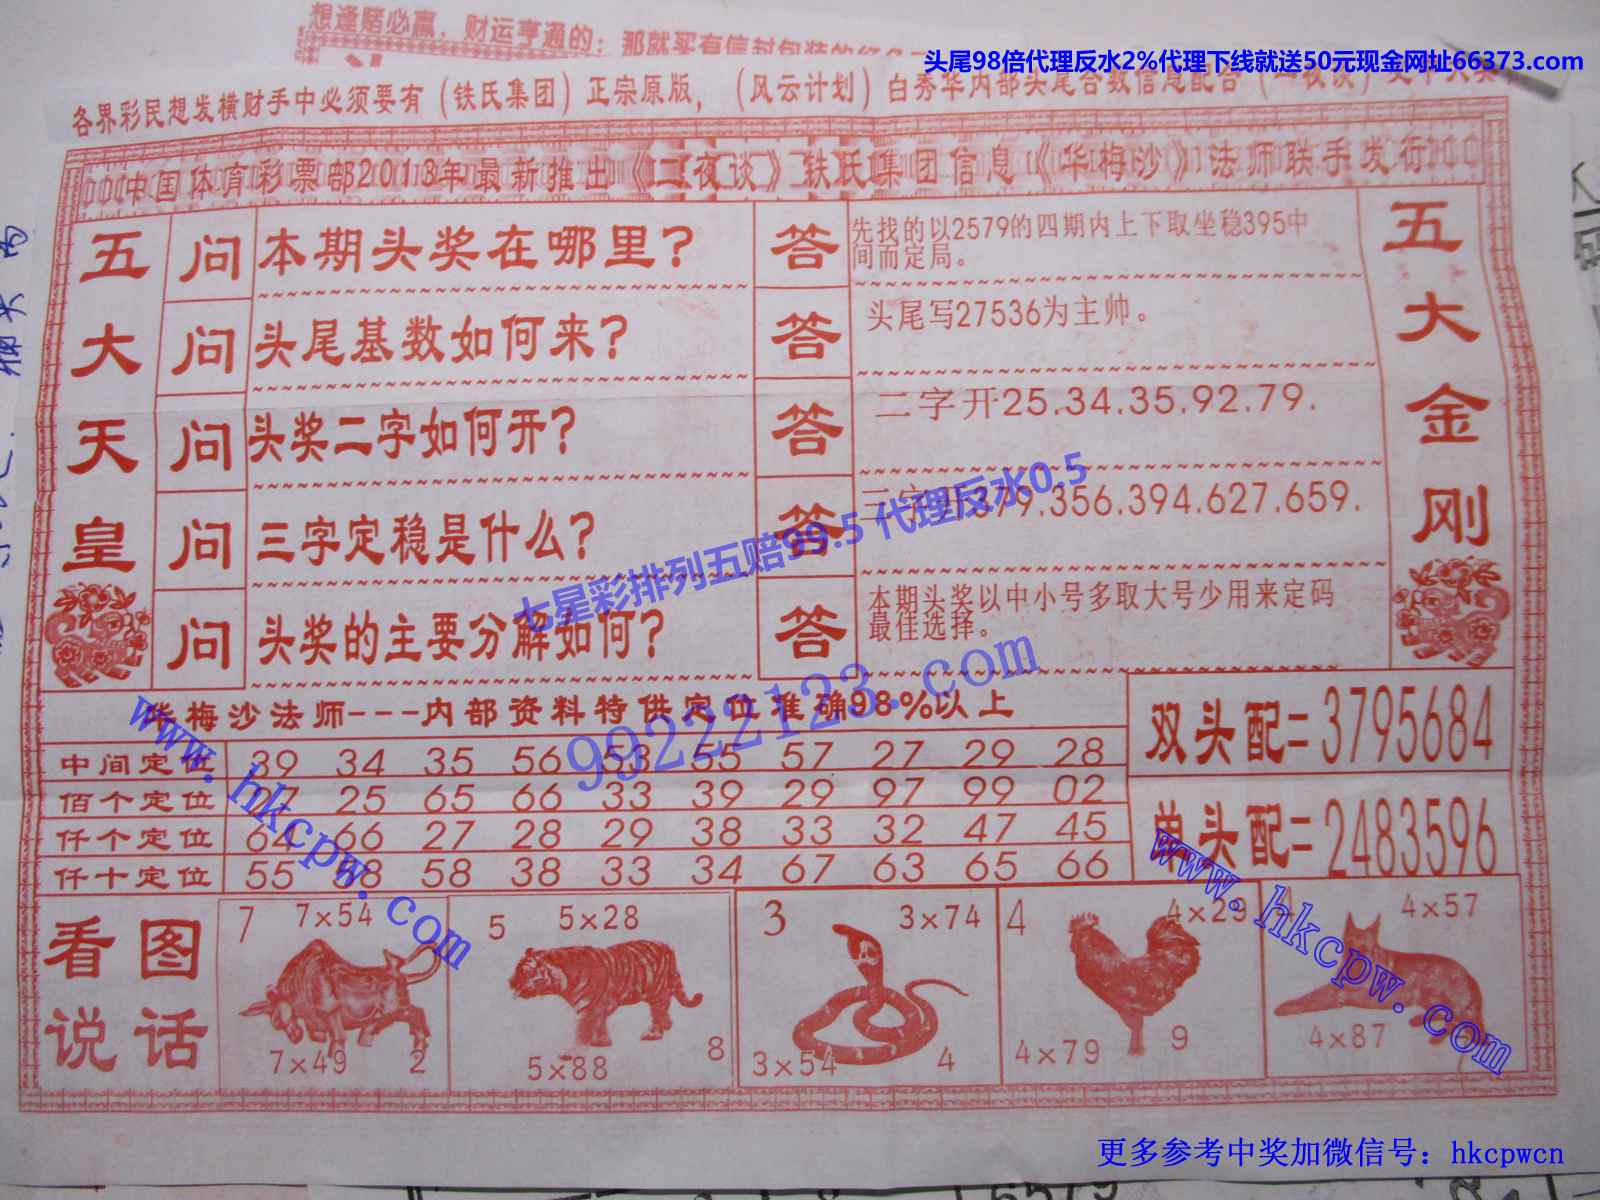 想逢赌必赢，财运亨通的：那就买有信封包装的
头尾98倍代理反水2%代理下线就送50元现金网址66373.com
各界彩民想发横财手中必须要有（铁氏集团）正宗原版，（风云计划）白秀华内部头尾合数信息配合
中国体育彩票部2013年最新推出《二夜谈》铁氏集团信息《华梅沙》法师联手发行
五大天皇
五大金刚
问 本期头奖在哪里？
答 先找的以2579的四期内上下取坐稳395中
间而定局。
问 头尾基数如何来？
答 头尾写27536为主帅。
问 头奖二字如何开？
答 二字开25.34.35.92.79.
问 三字定稳是什么？
答 三字开379.356.394.627.659.
问 头奖的主要分解如何？
答 本期头奖以中小号多取大号少用来定码
最佳选择。
七星彩排列五赔99.5 代理反水0.5
99222123.com
华梅沙法师---内部资料特供定位准确98%以上
中间定位 39 34 35 56 53 55 57 27 29 28
佰个定位 27 25 65 66 33 39 29 97 99 02
仟个定位 64 66 27 28 29 38 33 32 47 45
仟十定位 55 88 58 38 33 34 67 63 65 66
双头配=3795684
单头配=2483596
www.hkcpw.com
www.hkcpw.com
看图
说话
7 7×54
7×49 2
5 5×28
5×88 8
3 3×74
3×54 4
4 4×29
4×79 9
4×57
4×87
更多参考中奖加微信号：hkcpwcn
5579